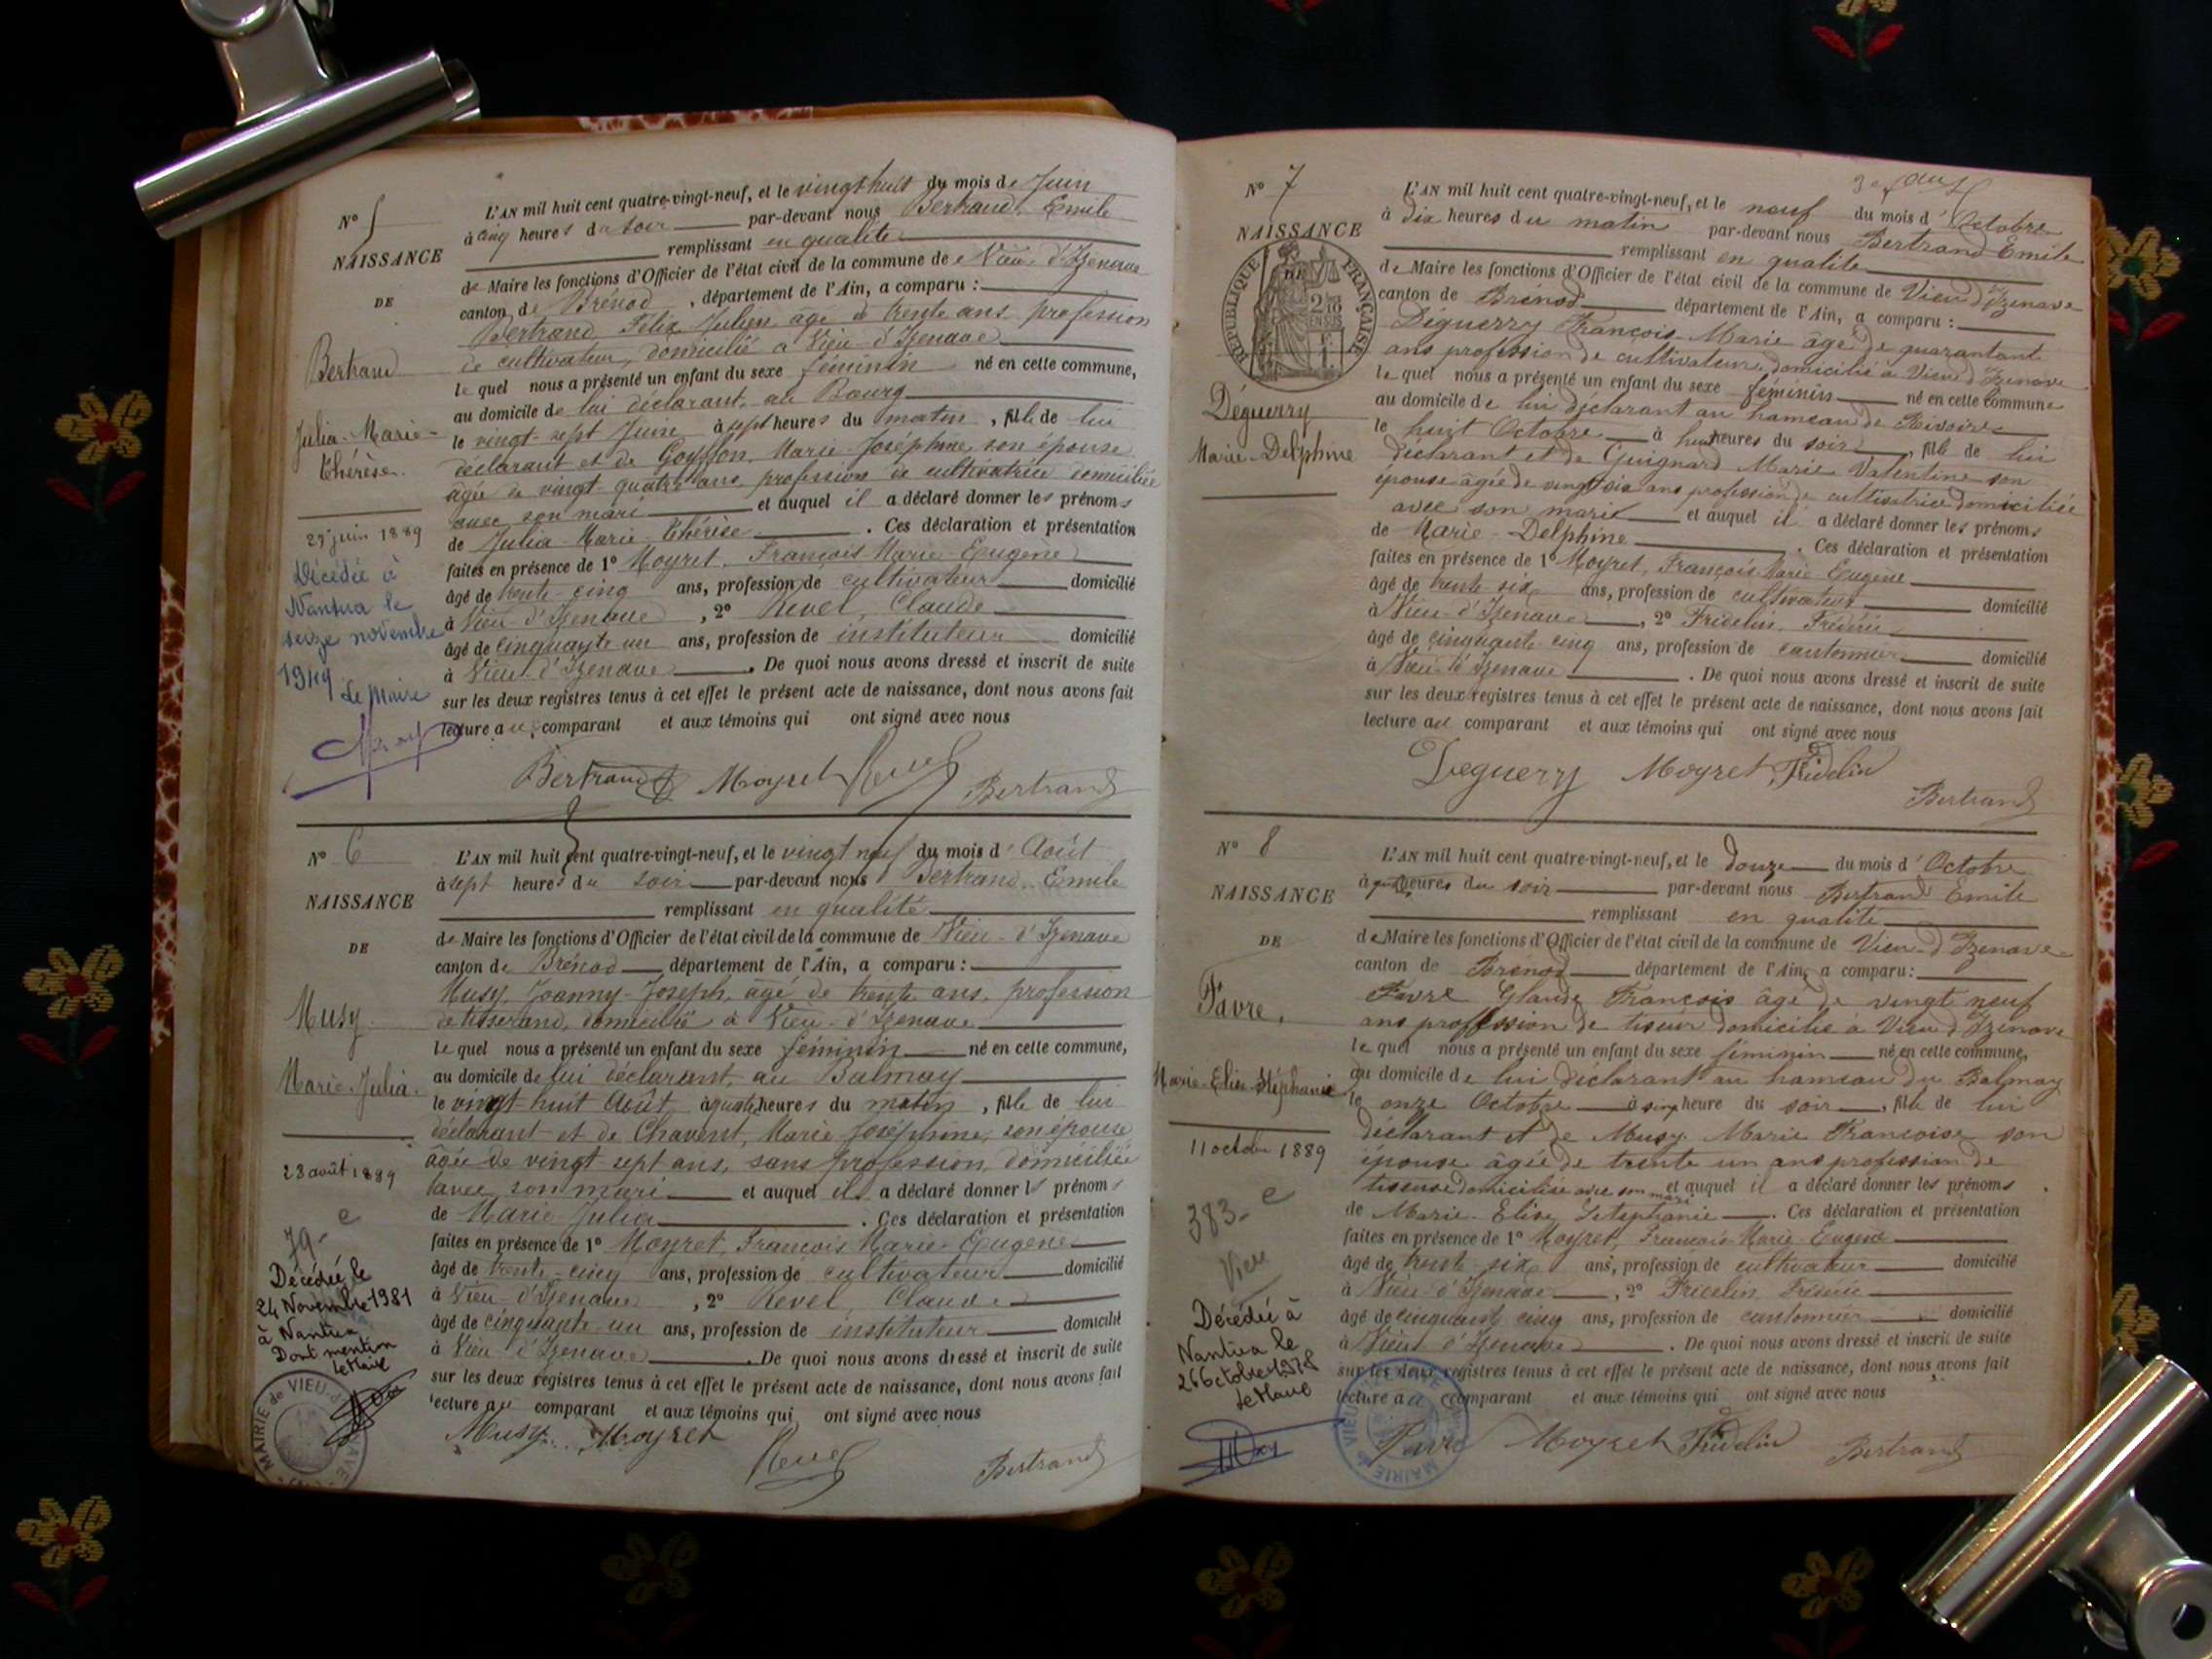 N° 5
NAISSANCE
DE
Bertrand
Julia-Marie-
Thérèse.
29 juin 1889
Décédée à
Nantua le
seize novembre
Le Maire
L'AN mil huit cent quatre-vingt-neuf, et le vingt huit du mois de Juin
à cinq heures du soir par-devant nous Bertrand, Emile
remplissant en qualité
de Maire les fonctions d'Officier de l'état civil de la commune de Vieu-d'Izenave
canton de Brénod, département de l'Ain, a comparu :
Bertrand Félix Julien, âgé de trente ans, profession
de cultivateur, domicilié à Vieu-d'Izenave
lequel nous a présenté un enfant du sexe féminin né en cette commune,
au domicile de lui déclarant, au Bourg
le vingt-sept Juin à sept heures du matin, fille de lui
déclarant et de Goyffon, Marie-Joséphine, son épouse
âgée de vingt-quatre ans, profession de cultivatrice domiciliée
avec son mari et auquel il a déclaré donner les prénoms
de Julia-Marie-Thérèse. Ces déclaration et présentation
faites en présence de 1° Moyret, François Marie-Eugène
âgé de trente-cinq ans, profession de cultivateur domicilié
à Vieu-d'Izenave, 2° Revel, Claude
âgé de cinquante un ans, profession de instituteur domicilié
à Vieu-d'Izenave. De quoi nous avons dressé et inscrit de suite
sur les deux registres tenus à cet effet le présent acte de naissance, dont nous avons fait
lecture au comparant et aux témoins qui ont signé avec nous
Bertrand Moyret Revel Bertrand
N° 6
NAISSANCE
DE
Musy
Marie-Julia.
28 août 1889
79-e
Décédée le
24 Novembre 1981
à Nantua
Dont mention
le Maire
MAIRIE de VIEU-d'IZENAVE
L'AN mil huit cent quatre-vingt-neuf, et le vingt neuf du mois d'Août
à sept heures du soir par-devant nous Bertrand, Emile
remplissant en qualité
de Maire les fonctions d'Officier de l'état civil de la commune de Vieu-d'Izenave
canton de Brénod département de l'Ain, a comparu :
Musy, Joanny-Joseph, âgé de trente ans, profession
de tisserand, domicilié à Vieu-d'Izenave
lequel nous a présenté un enfant du sexe féminin né en cette commune,
au domicile de lui déclarant, au Balmay
le vingt huit Août, à quatre heures du matin, fille de lui
déclarant et de Chavent, Marie Joséphine, son épouse
âgée de vingt sept ans, sans profession, domiciliée
avec son mari et auquel il a déclaré donner les prénoms
de Marie-Julia. Ces déclaration et présentation
faites en présence de 1° Moyret, François Marie-Eugène
âgé de trente-cinq ans, profession de cultivateur domicilié
à Vieu-d'Izenave, 2° Revel, Claude
âgé de cinquante-un ans, profession de instituteur domicilié
à Vieu-d'Izenave. De quoi nous avons dressé et inscrit de suite
sur les deux registres tenus à cet effet le présent acte de naissance, dont nous avons fait
lecture au comparant et aux témoins qui ont signé avec nous
Musy Moyret
Revel Bertrand
N° 7
NAISSANCE
DE
RÉPUBLIQUE FRANÇAISE
Déguerry
Marie-Delphine
L'AN mil huit cent quatre-vingt-neuf, et le neuf du mois d'Octobre
à dix heures du matin par-devant nous Bertrand Emile
remplissant en qualité
de Maire les fonctions d'Officier de l'état civil de la commune de Vieu d'Izenave
canton de Brénod département de l'Ain, a comparu :
Déguerry François-Marie âgé de quarantante
ans profession de cultivateur domicilié à Vieu d'Izenave
lequel nous a présenté un enfant du sexe féminin né en cette commune
au domicile de lui déclarant au hameau de Rivoire
le huit Octobre à huit heures du soir, fille de lui
déclarant et de Guignard Marie Valentine son
épouse âgée de vingt six ans profession de cultivatrice domiciliée
avec son mari et auquel il a déclaré donner les prénoms
de Marie-Delphine. Ces déclaration et présentation
faites en présence de 1° Moyret, François-Marie Eugène
âgé de trente-six ans, profession de cultivateur domicilié
à Vieu-d'Izenave, 2° Fridelin, Frédéric
âgé de cinquante cinq ans, profession de cantonnier domicilié
à Vieu-d'Izenave. De quoi nous avons dressé et inscrit de suite
sur les deux registres tenus à cet effet le présent acte de naissance, dont nous avons fait
lecture au comparant et aux témoins qui ont signé avec nous
Deguerry Moyret Fridelin
Bertrand
N° 8
NAISSANCE
DE
Favre,
Marie-Elise-Stéphanie
11 octobre 1889
383-e
Vieu
Décédée à
Nantua le
26 Octobre 1978
le Maire
L'AN mil huit cent quatre-vingt-neuf, et le douze du mois d'Octobre
heures du soir par-devant nous Bertrand Emile
remplissant en qualité
de Maire les fonctions d'Officier de l'état civil de la commune de Vieu-d'Izenave
canton de Brénod département de l'Ain, a comparu :
Favre Glaude François âgé de vingt neuf
ans proffession de tisseur domicilié à Vieu d'Izenave
lequel nous a présenté un enfant du sexe féminin né en cette commune,
au domicile de lui déclarant au hameau du Balmay
le onze Octobre à cinq heure du soir, fille de lui
déclarant et de Musy Marie Françoise son
épouse âgée de trente un ans profession de
tisseuse domiciliée avec son mari et auquel il a déclaré donner les prénoms
de Marie-Elise Stéphanie. Ces déclaration et présentation
faites en présence de 1° Moyret, François-Marie-Eugène
âgé de trente-six ans, profession de cultivateur domicilié
à Vieu-d'Izenave, 2° Fridelin Frédéric
âgé de cinquante cinq ans, profession de cantonnier domicilié
à Vieu d'Izenave. De quoi nous avons dressé et inscrit de suite
sur les deux registres tenus à cet effet le présent acte de naissance, dont nous avons fait
lecture au comparant et aux témoins qui ont signé avec nous
Favre Moyret Fridelin Bertrand